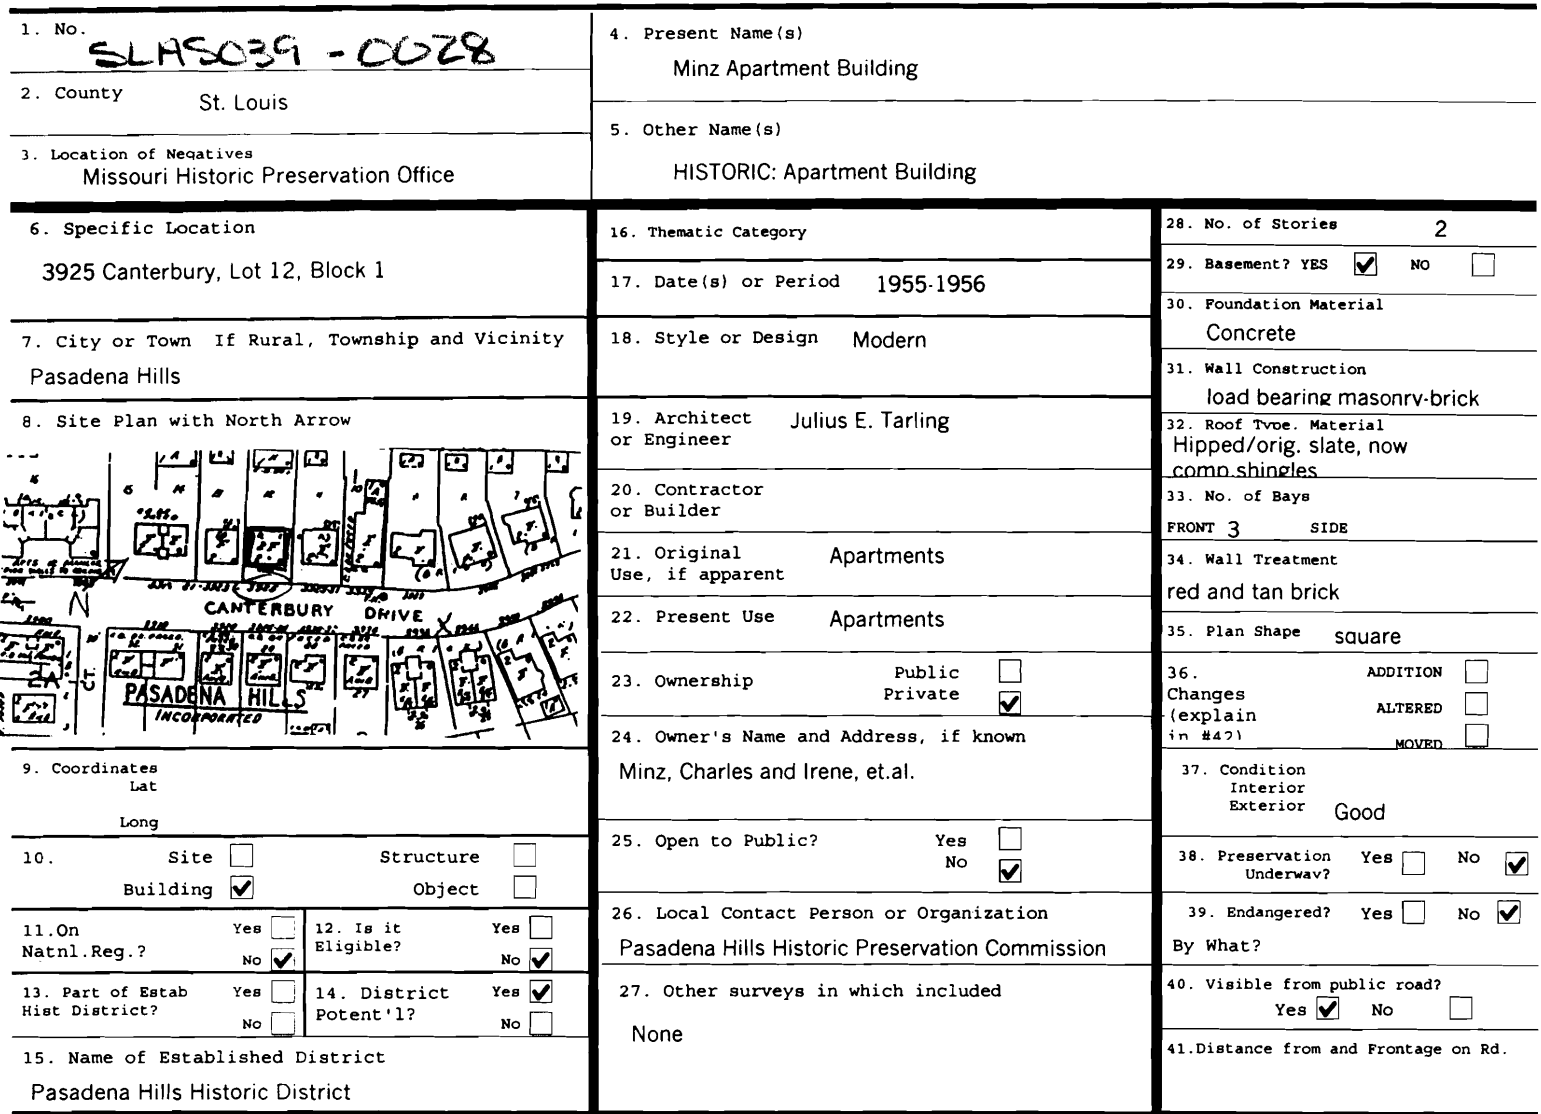 1. No.
SLAS039 - 0028
2. County
St. Louis
3. Location of Negatives
Missouri Historic Preservation Office
4. Present Name(s)
Minz Apartment Building
5. Other Name(s)
HISTORIC: Apartment Building
6. Specific Location
3925 Canterbury, Lot 12, Block 1
7. City or Town If Rural, Township and Vicinity
Pasadena Hills
8. Site Plan with North Arrow
N
CANTERBURY DRIVE
CT.
PASADENA HILLS
INCORPORATED
9. Coordinates
Lat
Long
10. Site Structure
Building Object
11.On Natnl.Reg.? Yes No
12. Is it Eligible? Yes No
13. Part of Estab Hist District? Yes No
14. District Potent'l? Yes No
15. Name of Established District
Pasadena Hills Historic District
16. Thematic Category
17. Date(s) or Period 1955-1956
18. Style or Design Modern
19. Architect or Engineer Julius E. Tarling
20. Contractor
or Builder
21. Original Use, if apparent Apartments
22. Present Use Apartments
23. Ownership Public
Private
24. Owner's Name and Address, if known
Minz, Charles and Irene, et.al.
25. Open to Public? Yes
No
26. Local Contact Person or Organization
Pasadena Hills Historic Preservation Commission
27. Other surveys in which included
None
28. No. of Stories 2
29. Basement? YES NO
30. Foundation Material
Concrete
31. Wall Construction
load bearing masonry-brick
32. Roof Type. Material
Hipped/orig. slate, now
comp.shingles
33. No. of Bays
FRONT 3 SIDE
34. Wall Treatment
red and tan brick
35. Plan Shape square
36. Changes (explain in #42)
ADDITION
ALTERED
MOVED
37. Condition
Interior
Exterior Good
38. Preservation Underway? Yes No
39. Endangered? Yes No
By What?
40. Visible from public road?
Yes No
41.Distance from and Frontage on Rd.